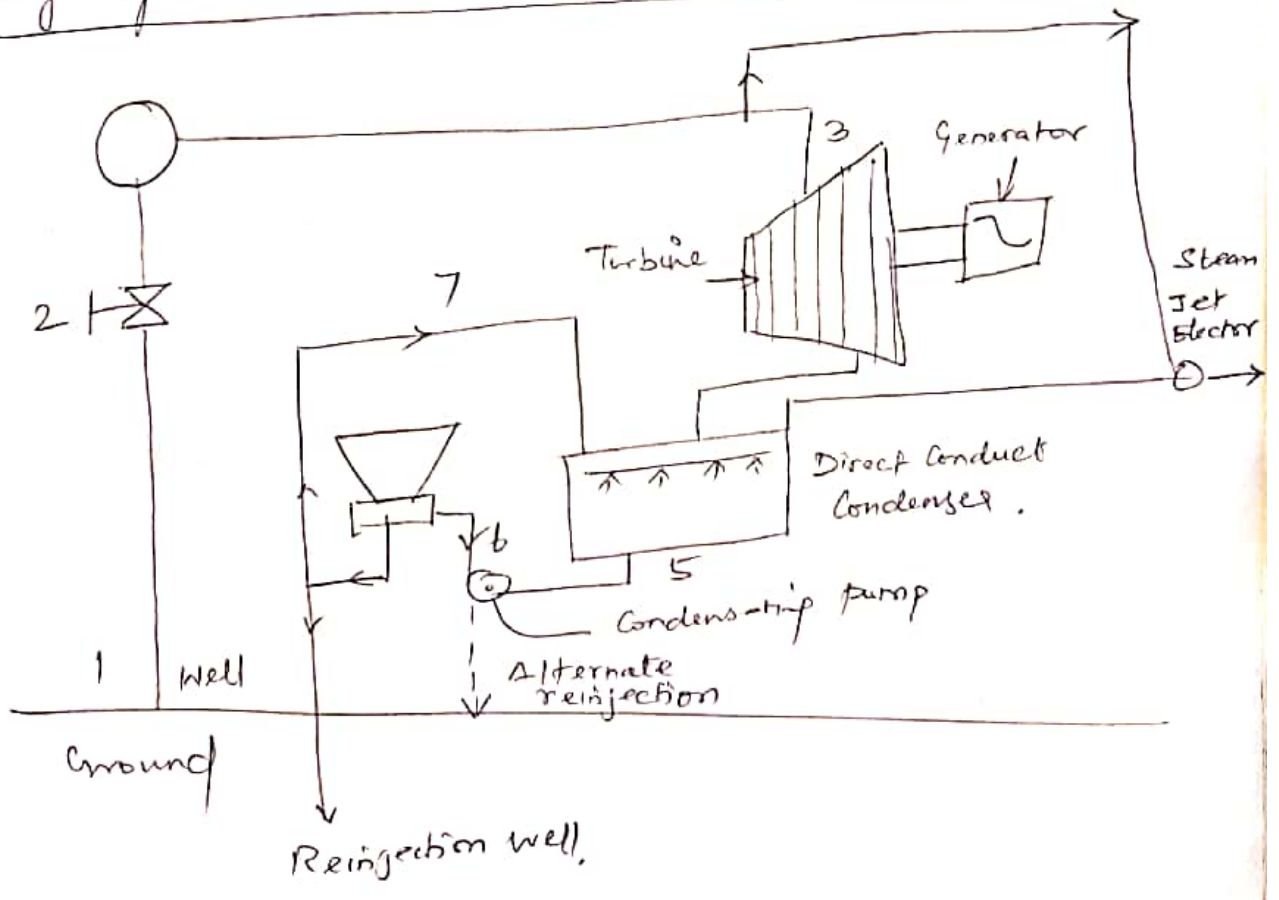 3
Generator
Turbine
Steam
Jet
Ejector
7
2
Direct Conduct
Condenser.
6
5
Condens-ating pump
1
Well
Alternate
reinjection
Ground
Reinjection well.